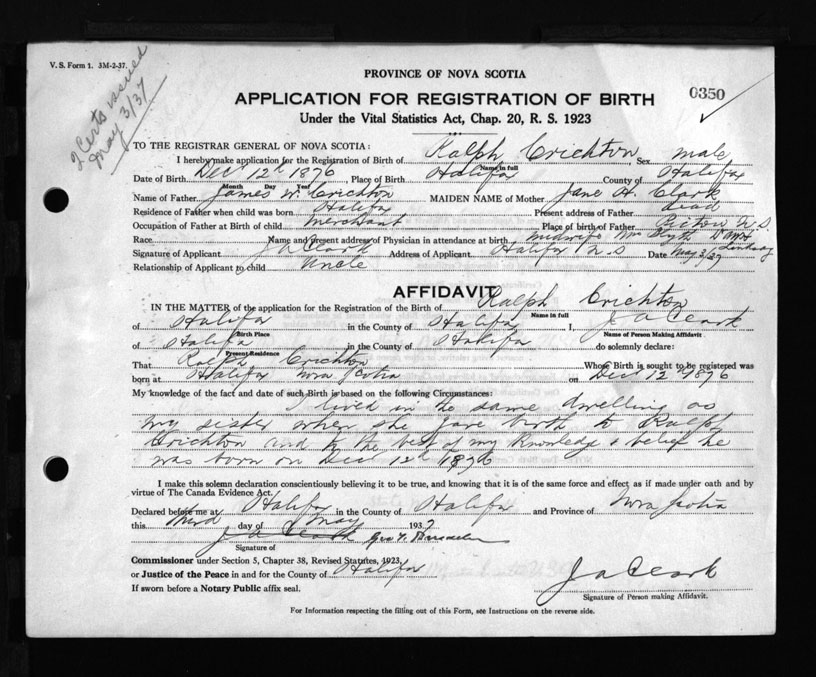 V. S. Form 1. 3M-2-37.
2 Certs issued
May 3/37
PROVINCE OF NOVA SCOTIA
APPLICATION FOR REGISTRATION OF BIRTH
0350
Under the Vital Statistics Act, Chap. 20, R. S. 1923
TO THE REGISTRAR GENERAL OF NOVA SCOTIA:
I hereby make application for the Registration of Birth of Ralph Crichton Sex male
Name in full
Date of Birth Dec 12th 1876, Place of Birth Halifax County of Halifax
Month Day Year
Name of Father James W. Crichton MAIDEN NAME of Mother Jane H. Clark
Residence of Father when child was born Halifax Present address of Father dead
Occupation of Father at Birth of child merchant Place of birth of Father Pictou N.S
Race Name and present address of Physician in attendance at birth midwife Mrs
Lindsay
Signature of Applicant J A Clark Address of Applicant Halifax N S Date May 3/37
Relationship of Applicant to child Uncle
AFFIDAVIT
IN THE MATTER of the application for the Registration of the Birth of Ralph Crichton
Name in full
of Halifax in the County of Halifax I, J A Clark
Birth Place Name of Person Making Affidavit
of Halifax in the County of Halifax do solemnly declare:
Present Residence
That Ralph Crichton Whose Birth is sought to be registered was
born at Halifax Nova Scotia on Dec 12th 1876
My knowledge of the fact and date of such Birth is based on the following Circumstances:
I lived in the same dwelling as
my sister when she gave birth to Ralph
Crichton and to the best of my knowledge & belief he
was born on Dec 12th 1876
I make this solemn declaration conscientiously believing it to be true, and knowing that it is of the same force and effect as if made under oath and by
virtue of The Canada Evidence Act.
Declared before me at Halifax in the County of Halifax and Province of Nova Scotia
this third day of May 1937
J A Clark Geo
Signature of
Commissioner under Section 5, Chapter 38, Revised Statutes, 1923,
or Justice of the Peace in and for the County of Halifax
If sworn before a Notary Public affix seal.
J A Clark
Signature of Person making Affidavit.
For Information respecting the filling out of this Form, see Instructions on the reverse side.